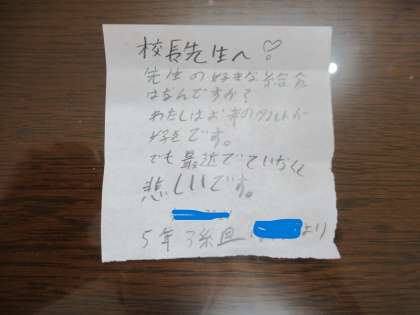 校長先生へ♡
先生の好きな給食
はなんですか?
わたしはお米のタルトが
好きです。
でも最近でていなくて
悲しいです。
5年3組 より